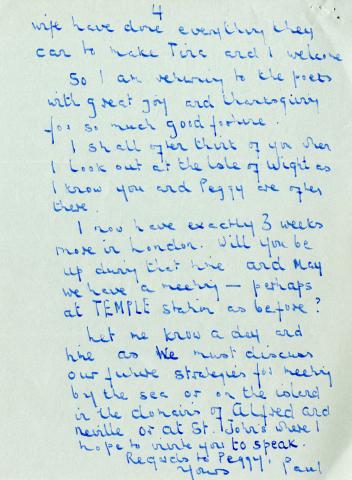 4
wife have done everything they
can to make Tina and I welcome
So I am returning to the poets
with great joy and thanksgiving
for so much good fortune.
I shall often think of you when
I look out at the Isle of Wight as
I know you and Peggy are often
there.
I now have exactly 3 weeks
more in London. Will you be
up during that time and may
we have a meeting — perhaps
at TEMPLE station as before?
Let me know a day and
time as we must discuss
our future strategies for meeting
by the sea or on the island
in the domains of Alfred and
neville or at St. John's where I
hope to invite you to speak.
Regards to Peggy,
Yours Paul